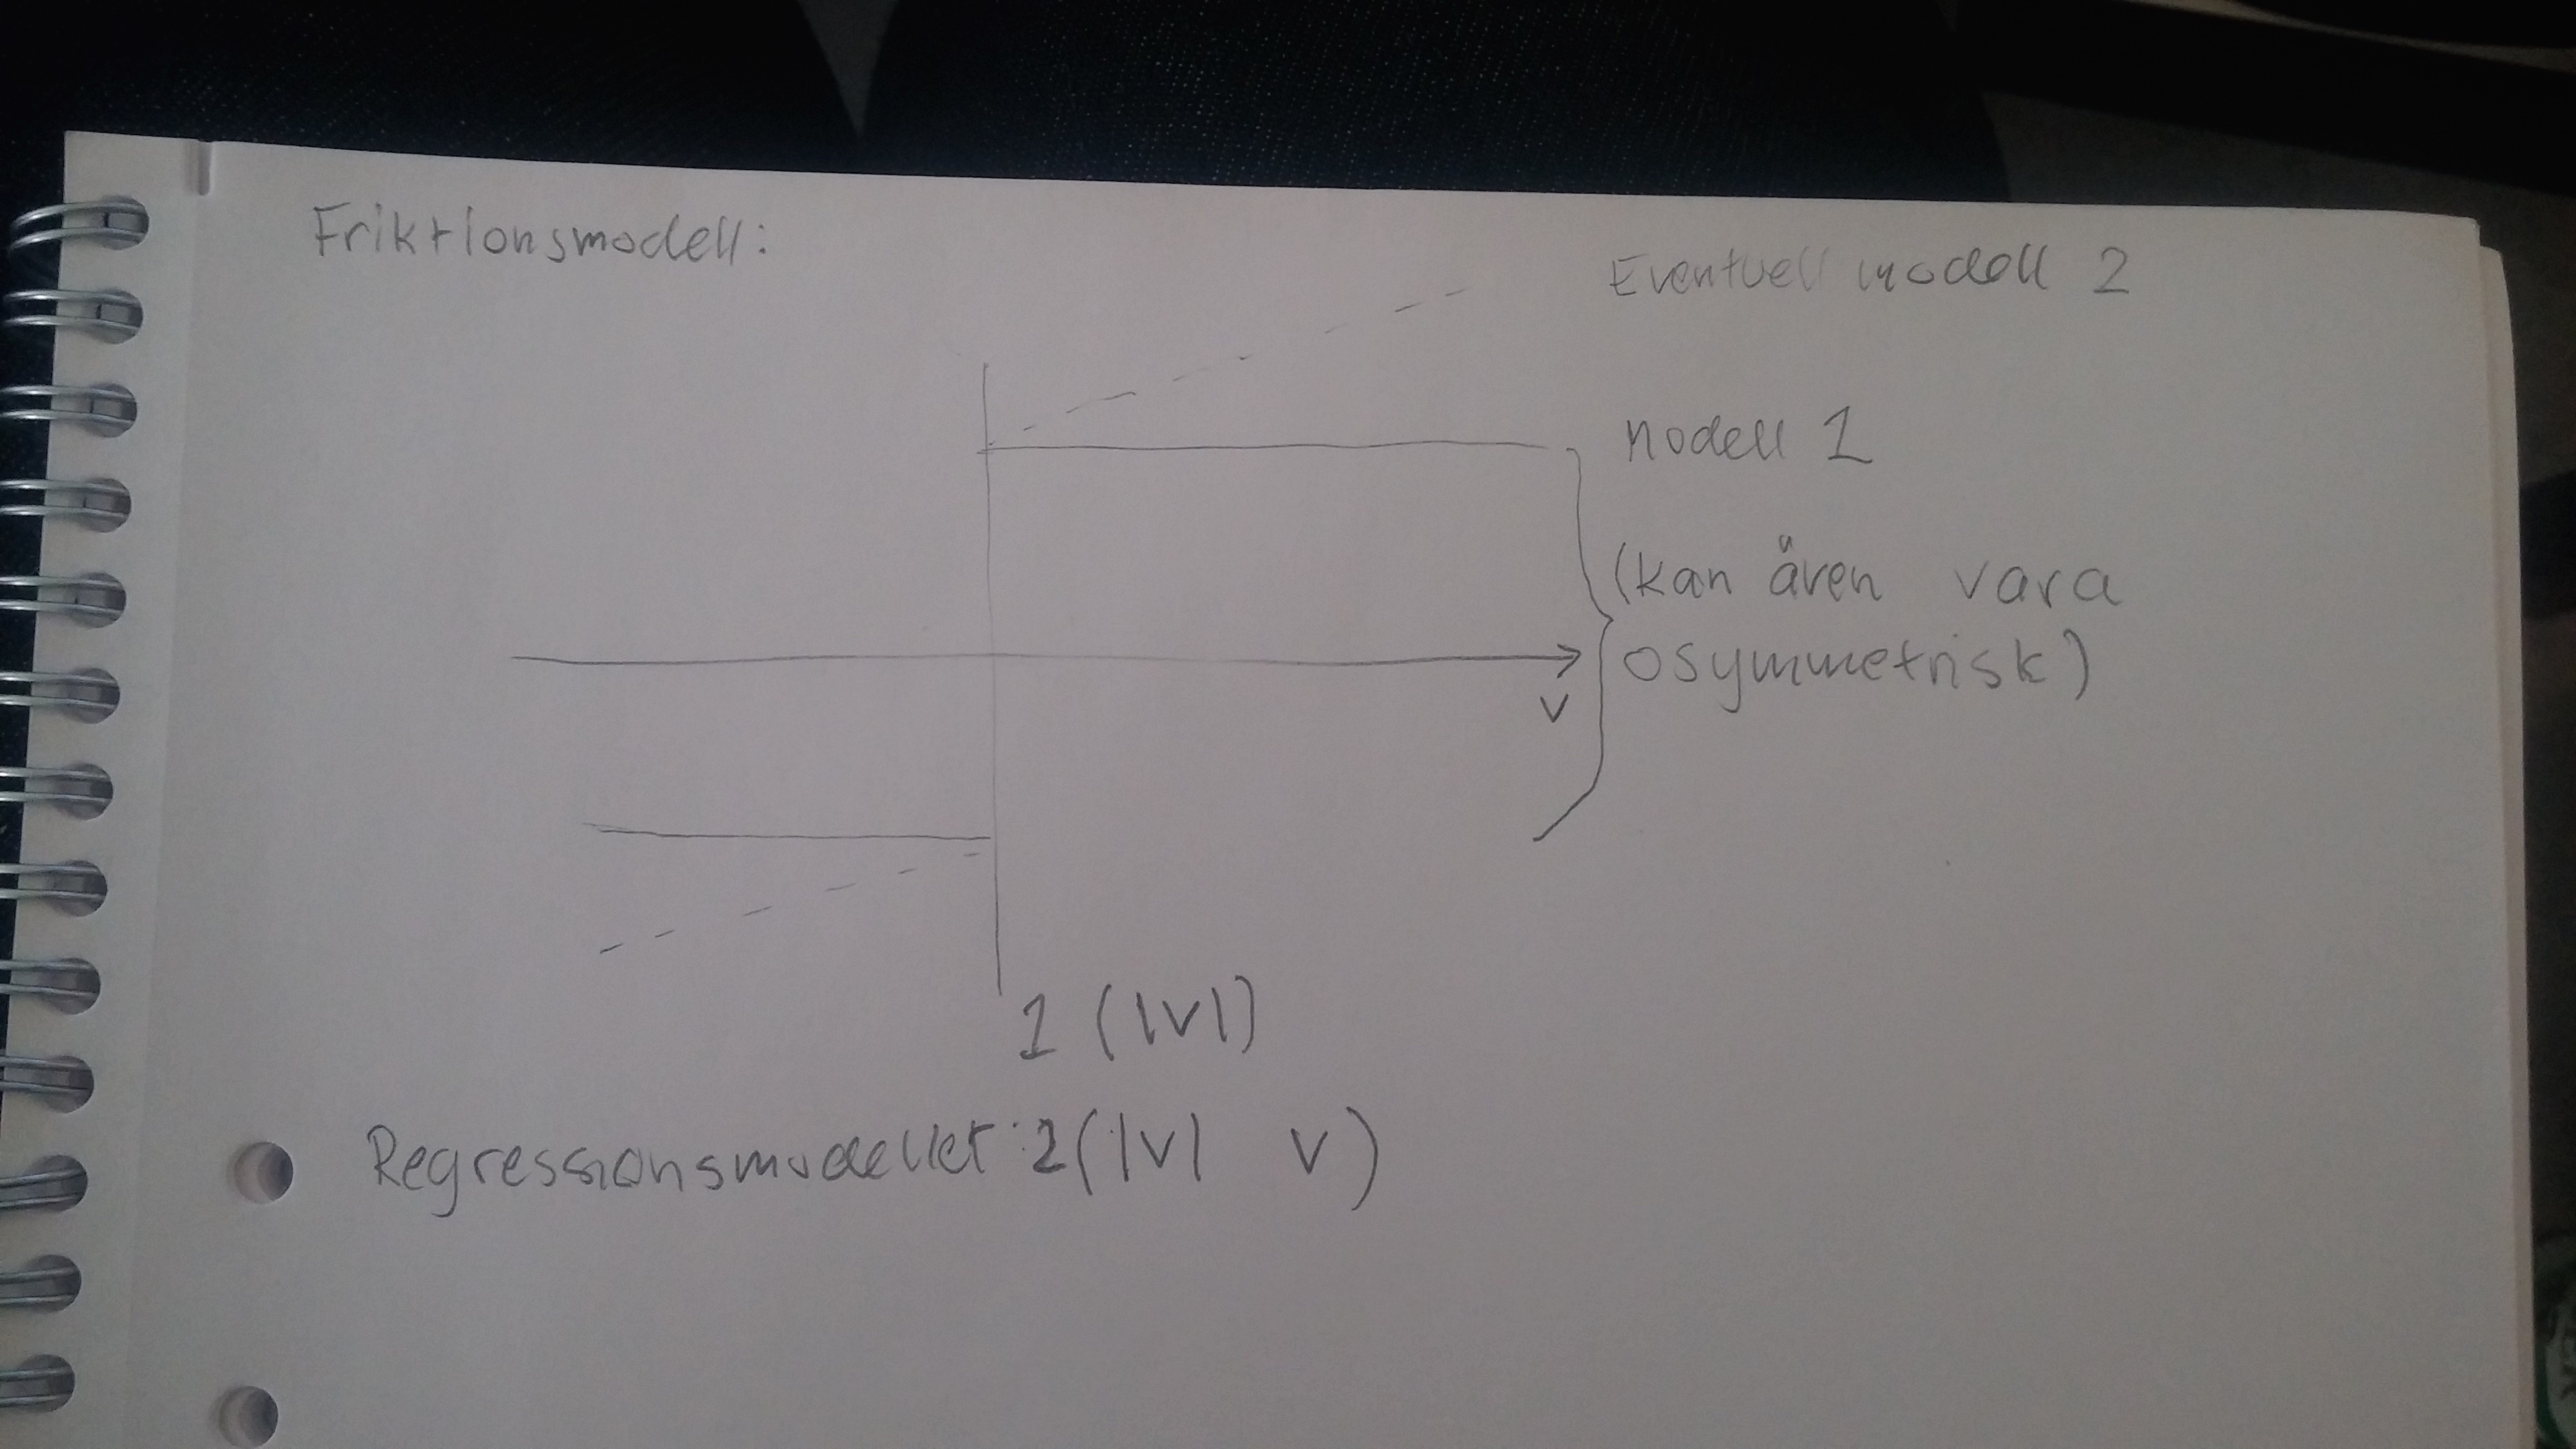 Friktionsmodell:
Eventuell modell 2
Modell 1
(kan även vara
osymmetrisk)
v
1 (|v|)
Regressionsmodellet: 2(|v| v)